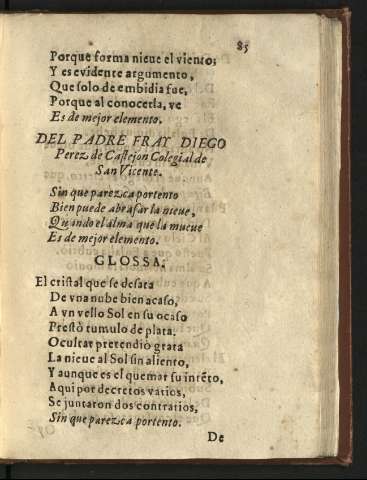 85
Porque forma nieue el viento;
Y es evidente argumento,
Que solo de embidia fue,
Porque al conocerla, ve
Es de mejor elemento.
DEL PADRE FRAY DIEGO
Perez de Castejon Colegial de
San Vicente.
Sin que parezca portento
Bien puede abrasar la nieue,
Quando el alma que la mueue
Es de mejor elemento.
GLOSSA.
El cristal que se desata
De vna nube bien acaso,
A vn vello Sol en su ocaso
Prestò tumulo de plata.
Ocultar pretendiò grata
La nieue al Sol sin aliento,
Y aunque es el quemar su intẽto,
Aqui por decretos varios,
Se juntaron dos contrarios,
Sin que parezca portento.
De